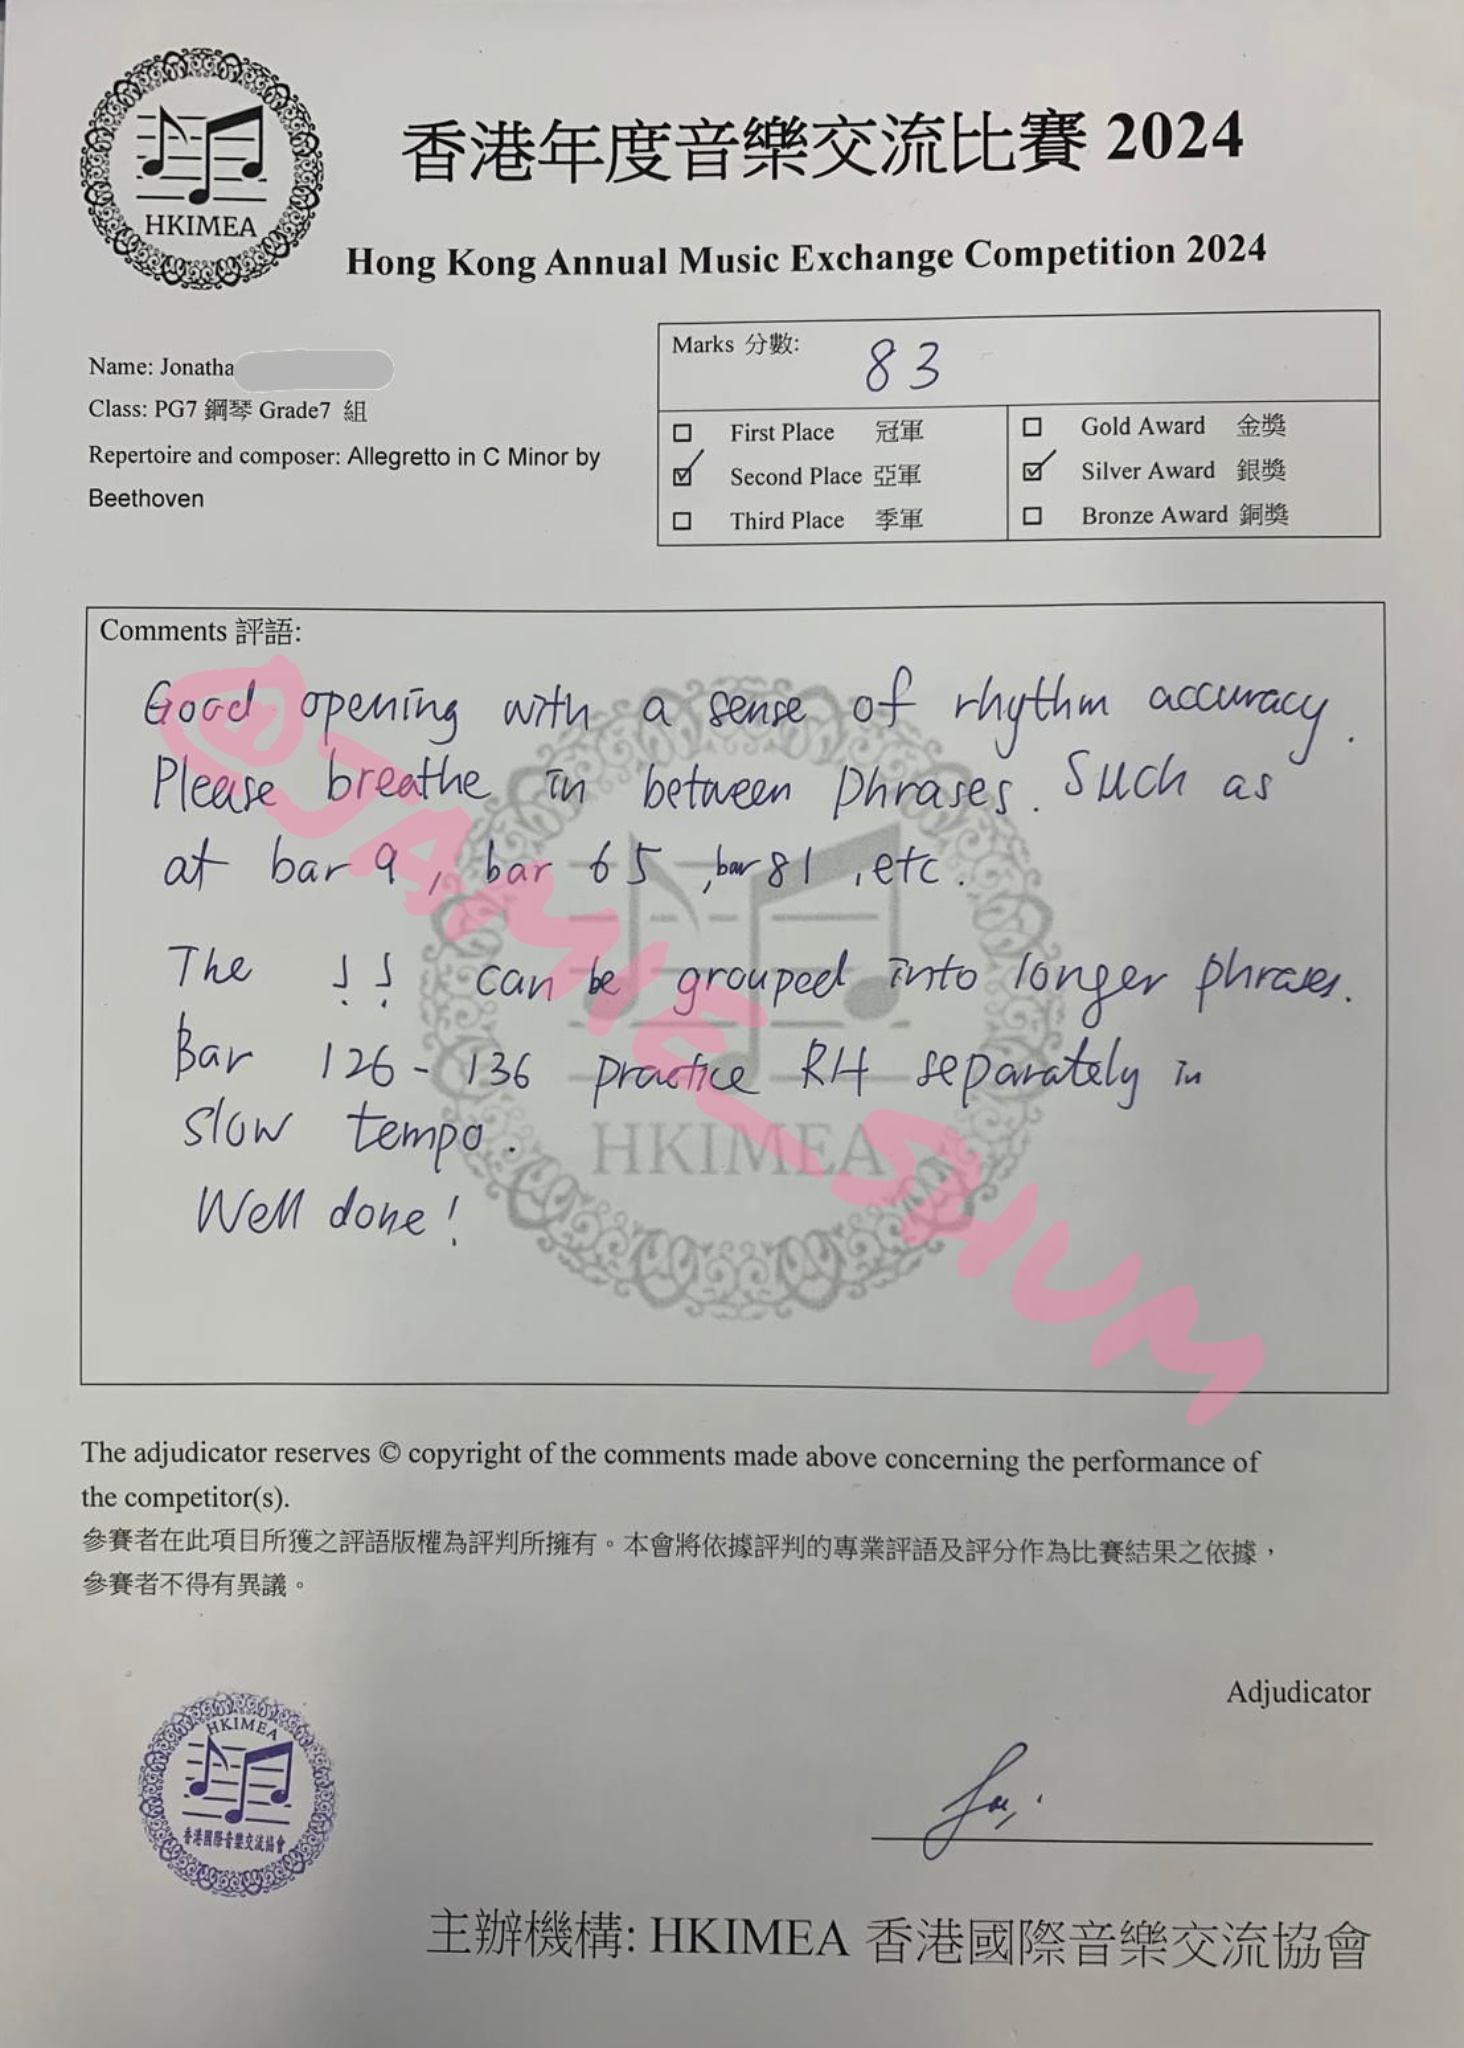 HKIMEA
香港年度音樂交流比賽 2024
Hong Kong Annual Music Exchange Competition 2024
Name: Jonatha
Class: PG7 鋼琴 Grade7 組
Repertoire and composer: Allegretto in C Minor by
Beethoven
Marks 分數: 83
☐ First Place 冠軍
☑ Second Place 亞軍
☐ Third Place 季軍
☐ Gold Award 金獎
☑ Silver Award 銀獎
☐ Bronze Award 銅獎
Comments 評語:
Good opening with a sense of rhythm accuracy.
Please breathe in between phrases. Such as
at bar 9, bar 65, bar 81, etc.
The ♩̣ ♩̣ can be grouped into longer phrases.
Bar 126 - 136 practice RH separately in
slow tempo.
Well done!
HKIMEA
@JAMIE_SHUM
The adjudicator reserves © copyright of the comments made above concerning the performance of
the competitor(s).
參賽者在此項目所獲之評語版權為評判所擁有。本會將依據評判的專業評語及評分作為比賽結果之依據，
參賽者不得有異議。
Adjudicator
HKIMEA
香港國際音樂交流協會
主辦機構: HKIMEA 香港國際音樂交流協會